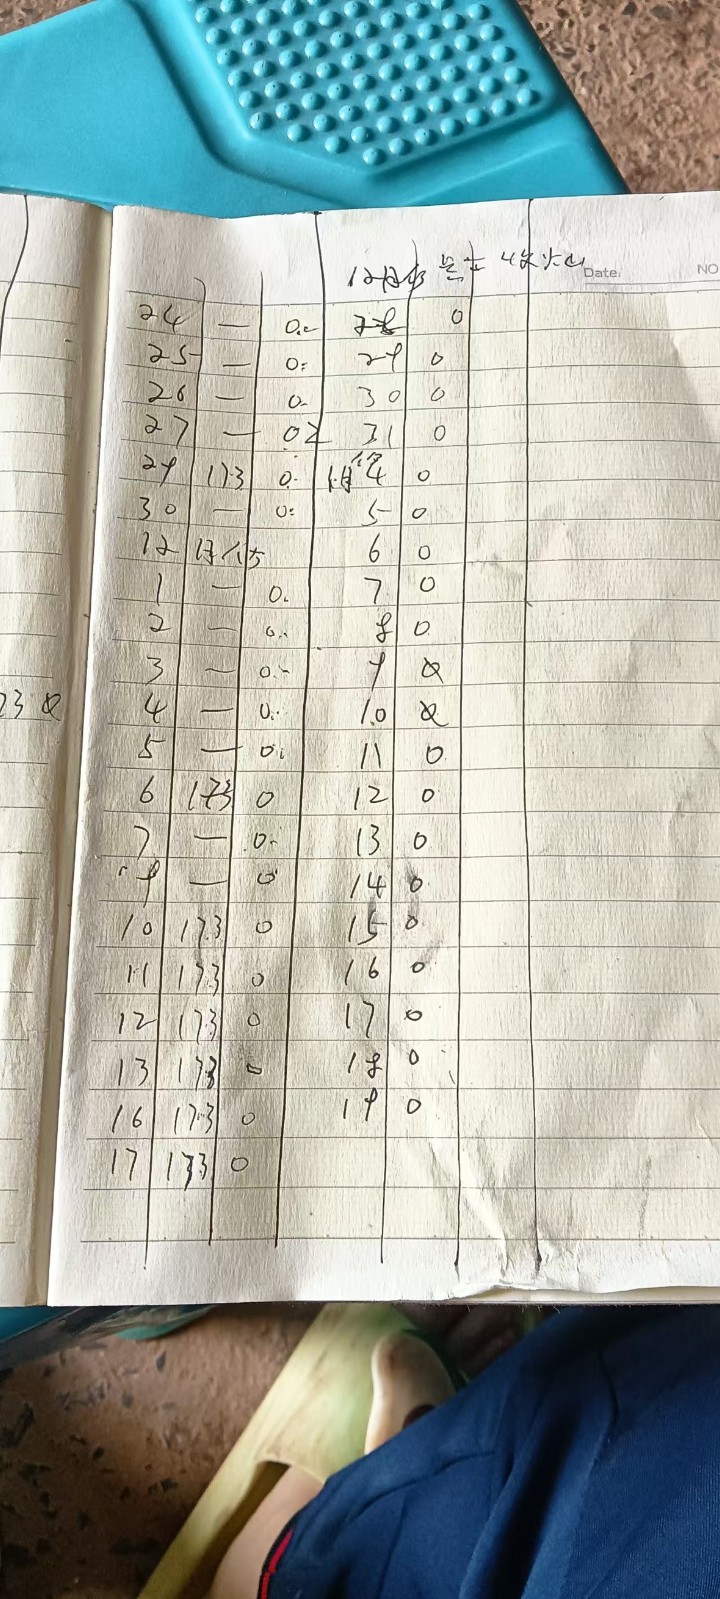 Date. NO
24 — 0.
25 — 0. 29 0
26 — 0. 30 0
27 — 02 31 0
29 173 0. 1月 4 0
30 — 0. 5 0
12 6 0
1 — 0. 7 0
2 — 0. 8 0
3 — 0. 9 0
23 0 4 — 0. 10 0
5 — 0. 11 0
6 173 0 12 0
7 — 0. 13 0
9 — 0 14 0
10 173 0 15 0
11 173 0 16 0
12 173 0 17 0
13 173 0 18 0
16 173 0 19 0
17 173 0